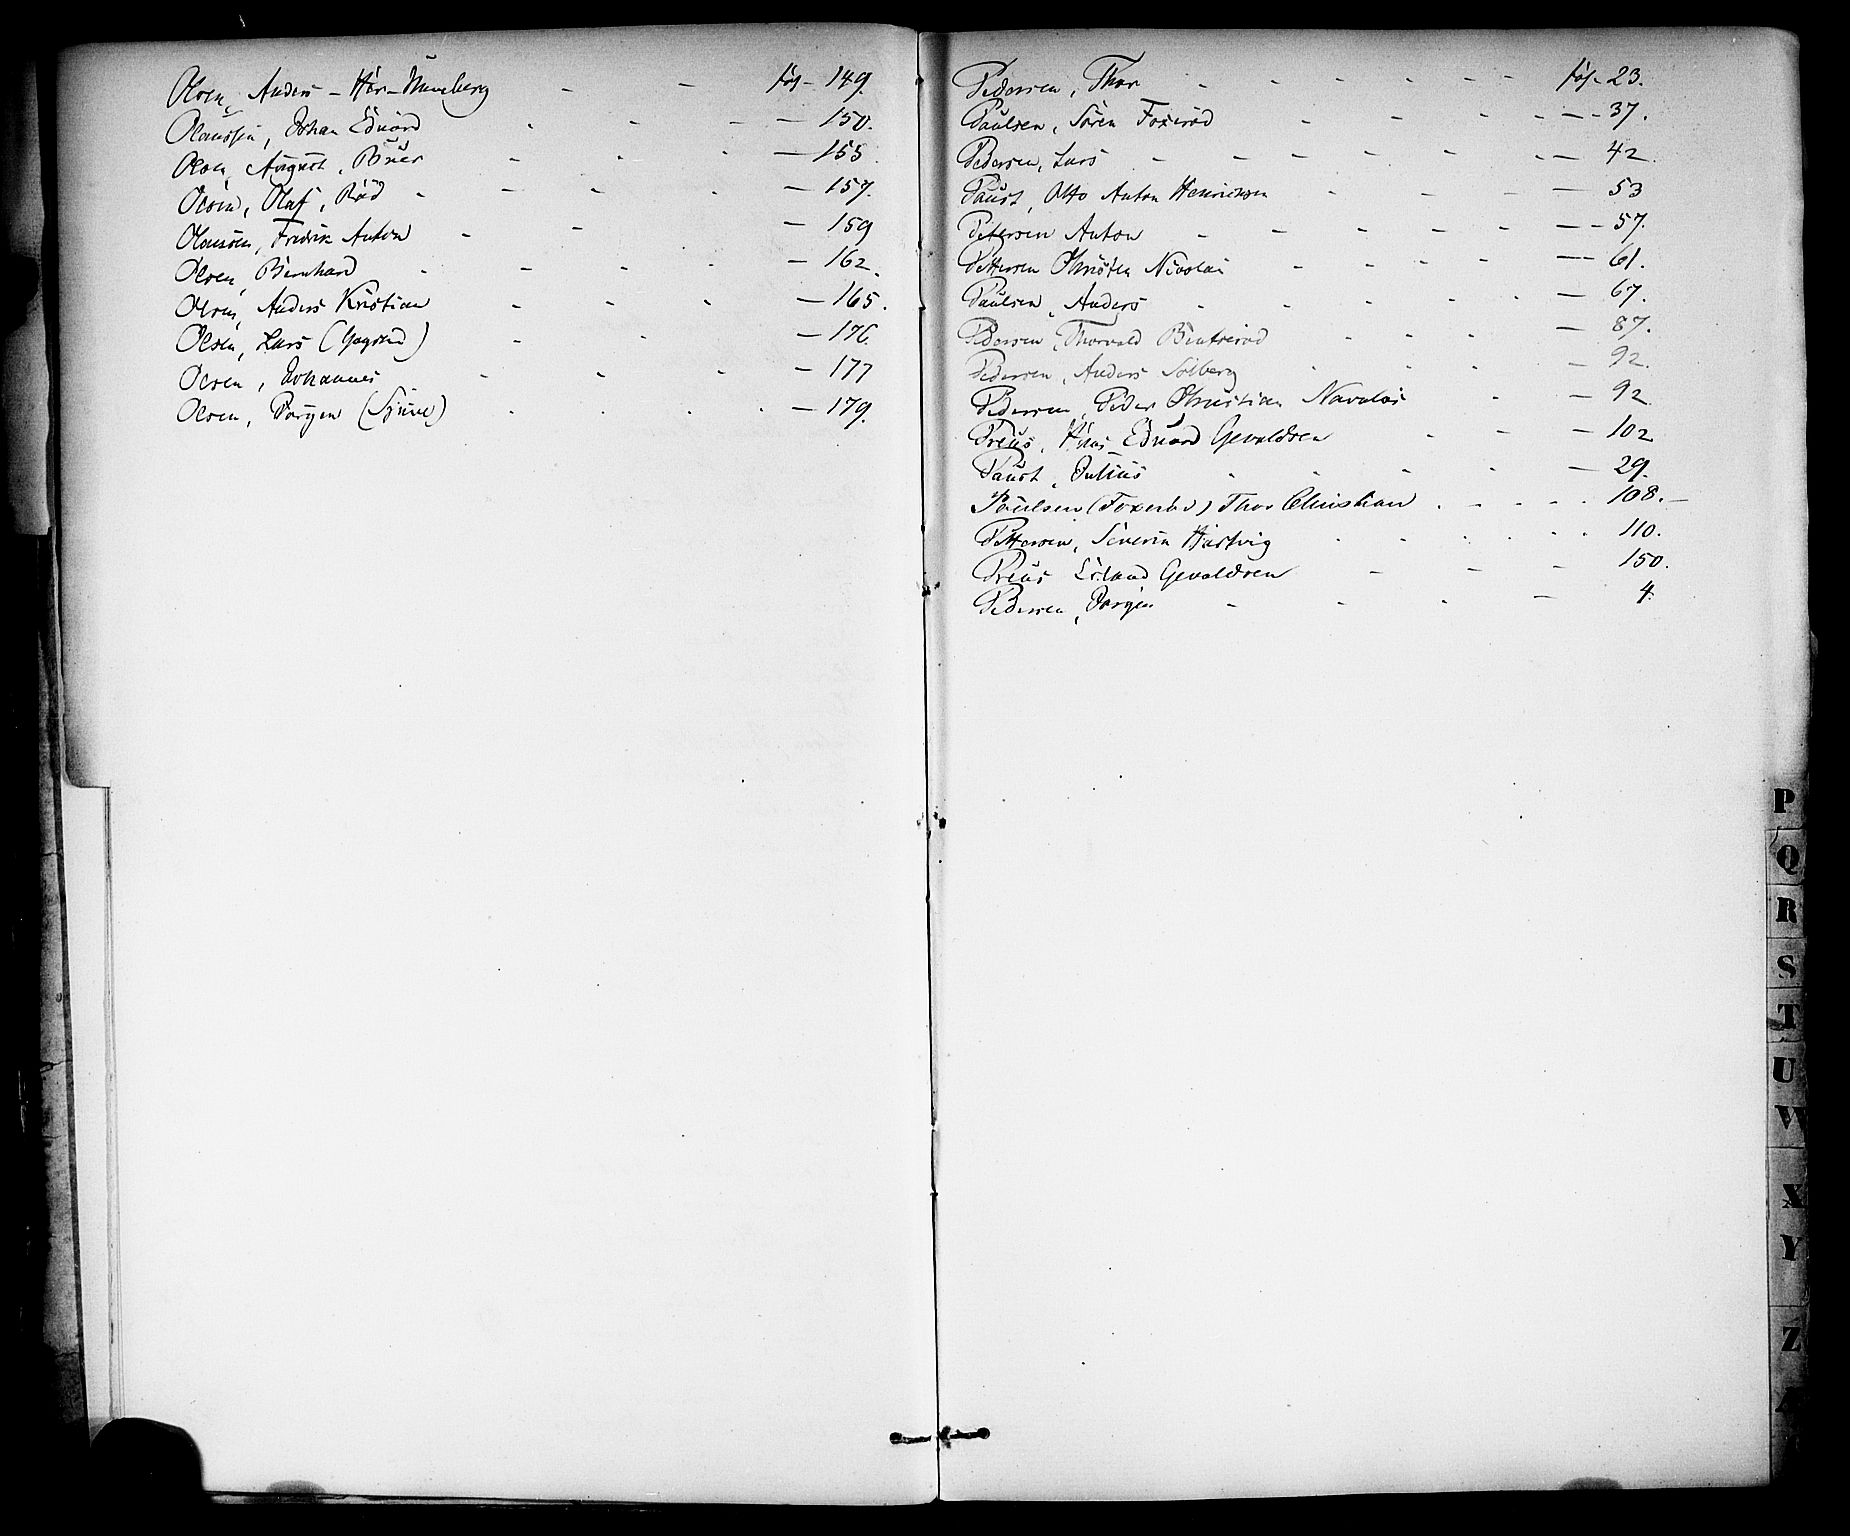 Olsen, Anders - Hør- - - føl - 149.
Olaussen, Johan Edvard - - - - 150.
Olsen, August, Buer - - - - 155.
Olsen, Olaf, Rød - - - - - 157.
Olaussen, Fredrik Anton - - - 159
Olsen, Bernhard - - - - - 162.
Olsen, Anders Kristian - - - - 165.
Olsen, Lars - - - 176.
Olsen, Johannes - - - - 177
Olsen, Jørgen - - - - - 179.
Pedersen, Thor - - - - - - føl - 23.
Paulsen, Søren Foxerød - - - - - 37.
Pedersen, Lars - - - - - - 42.
Paust, Otto Anton Henriksen - - - - 53
Pettersen Anton - - - - - - 57.
Pettersen Christen Nicolai - - - - - 61.
Paulsen, Anders - - - - - - 67.
Pedersen, Thorvald - - - - 87.
Pedersen, Anders Solberg - - - - 92.
Pedersen, Peder Christian - - 92
Preus, Edvard Gevaldsen - - - 102
Paust, Julius - - - - - 29.
Poulsen (Foxerød) Thor Christian . - - - . 108. -
Pettersen, Severin Hartvig - - - - . 110.
Preus Erland Gevaldsen - - - 150.
Pedersen, Jørgen - - - - 4.
P
Q
R
S
T
U
W
X
Y
Z